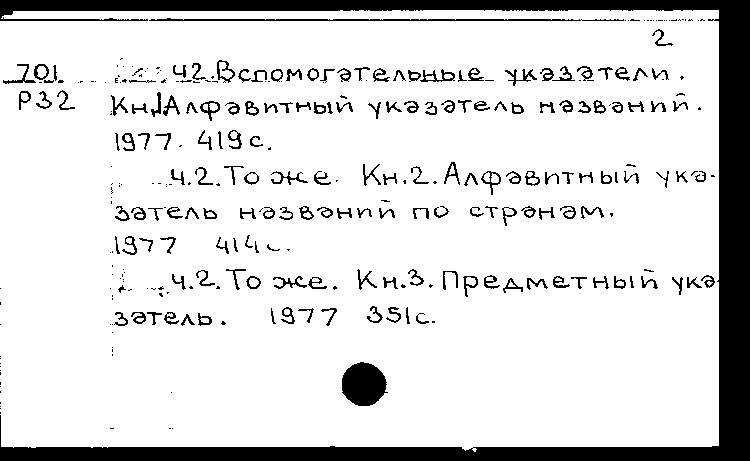 2
701 Ч2. Вспомогательные указатели.
Р32 Кн.1 Алфавитный указатель названий.
1977. 419 с.
Ч.2. То же. Кн.2. Алфавитный ука-
затель названий по странам.
1977 414 с.
Ч.2. То же. Кн.3. Предметный ука-
затель. 1977 351 с.